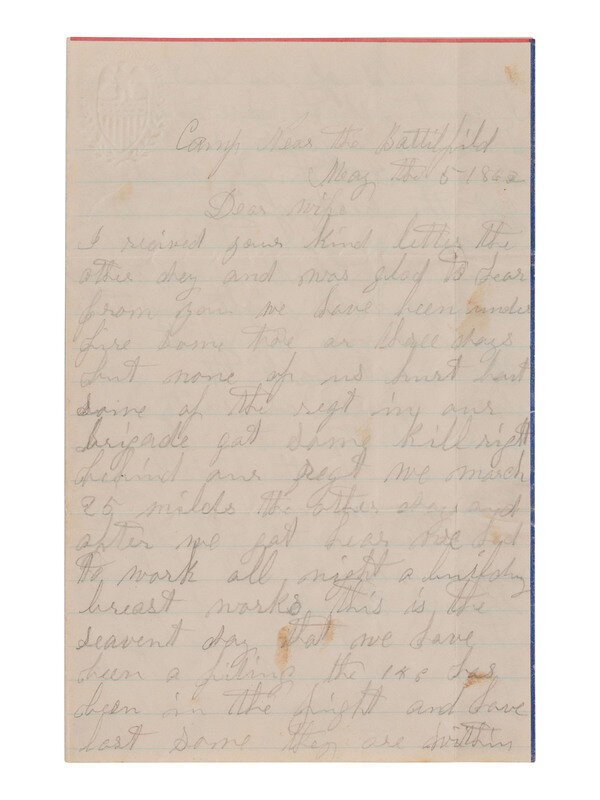 Camp Near the Battilfild
May the 5 186
Dear wife
I recived your kind letter the
other day and was glad to hear
from you we have been under
fire some two or three days
but none of us hurt but
some of the regt in our
brigade got some kill right
behind our Regt we march
25 milds the other day and
after we got hear we had
to work all night a building
breast works this is the
seavent day that we have
been a fiting the has
been in the fight and have
lost some they are within